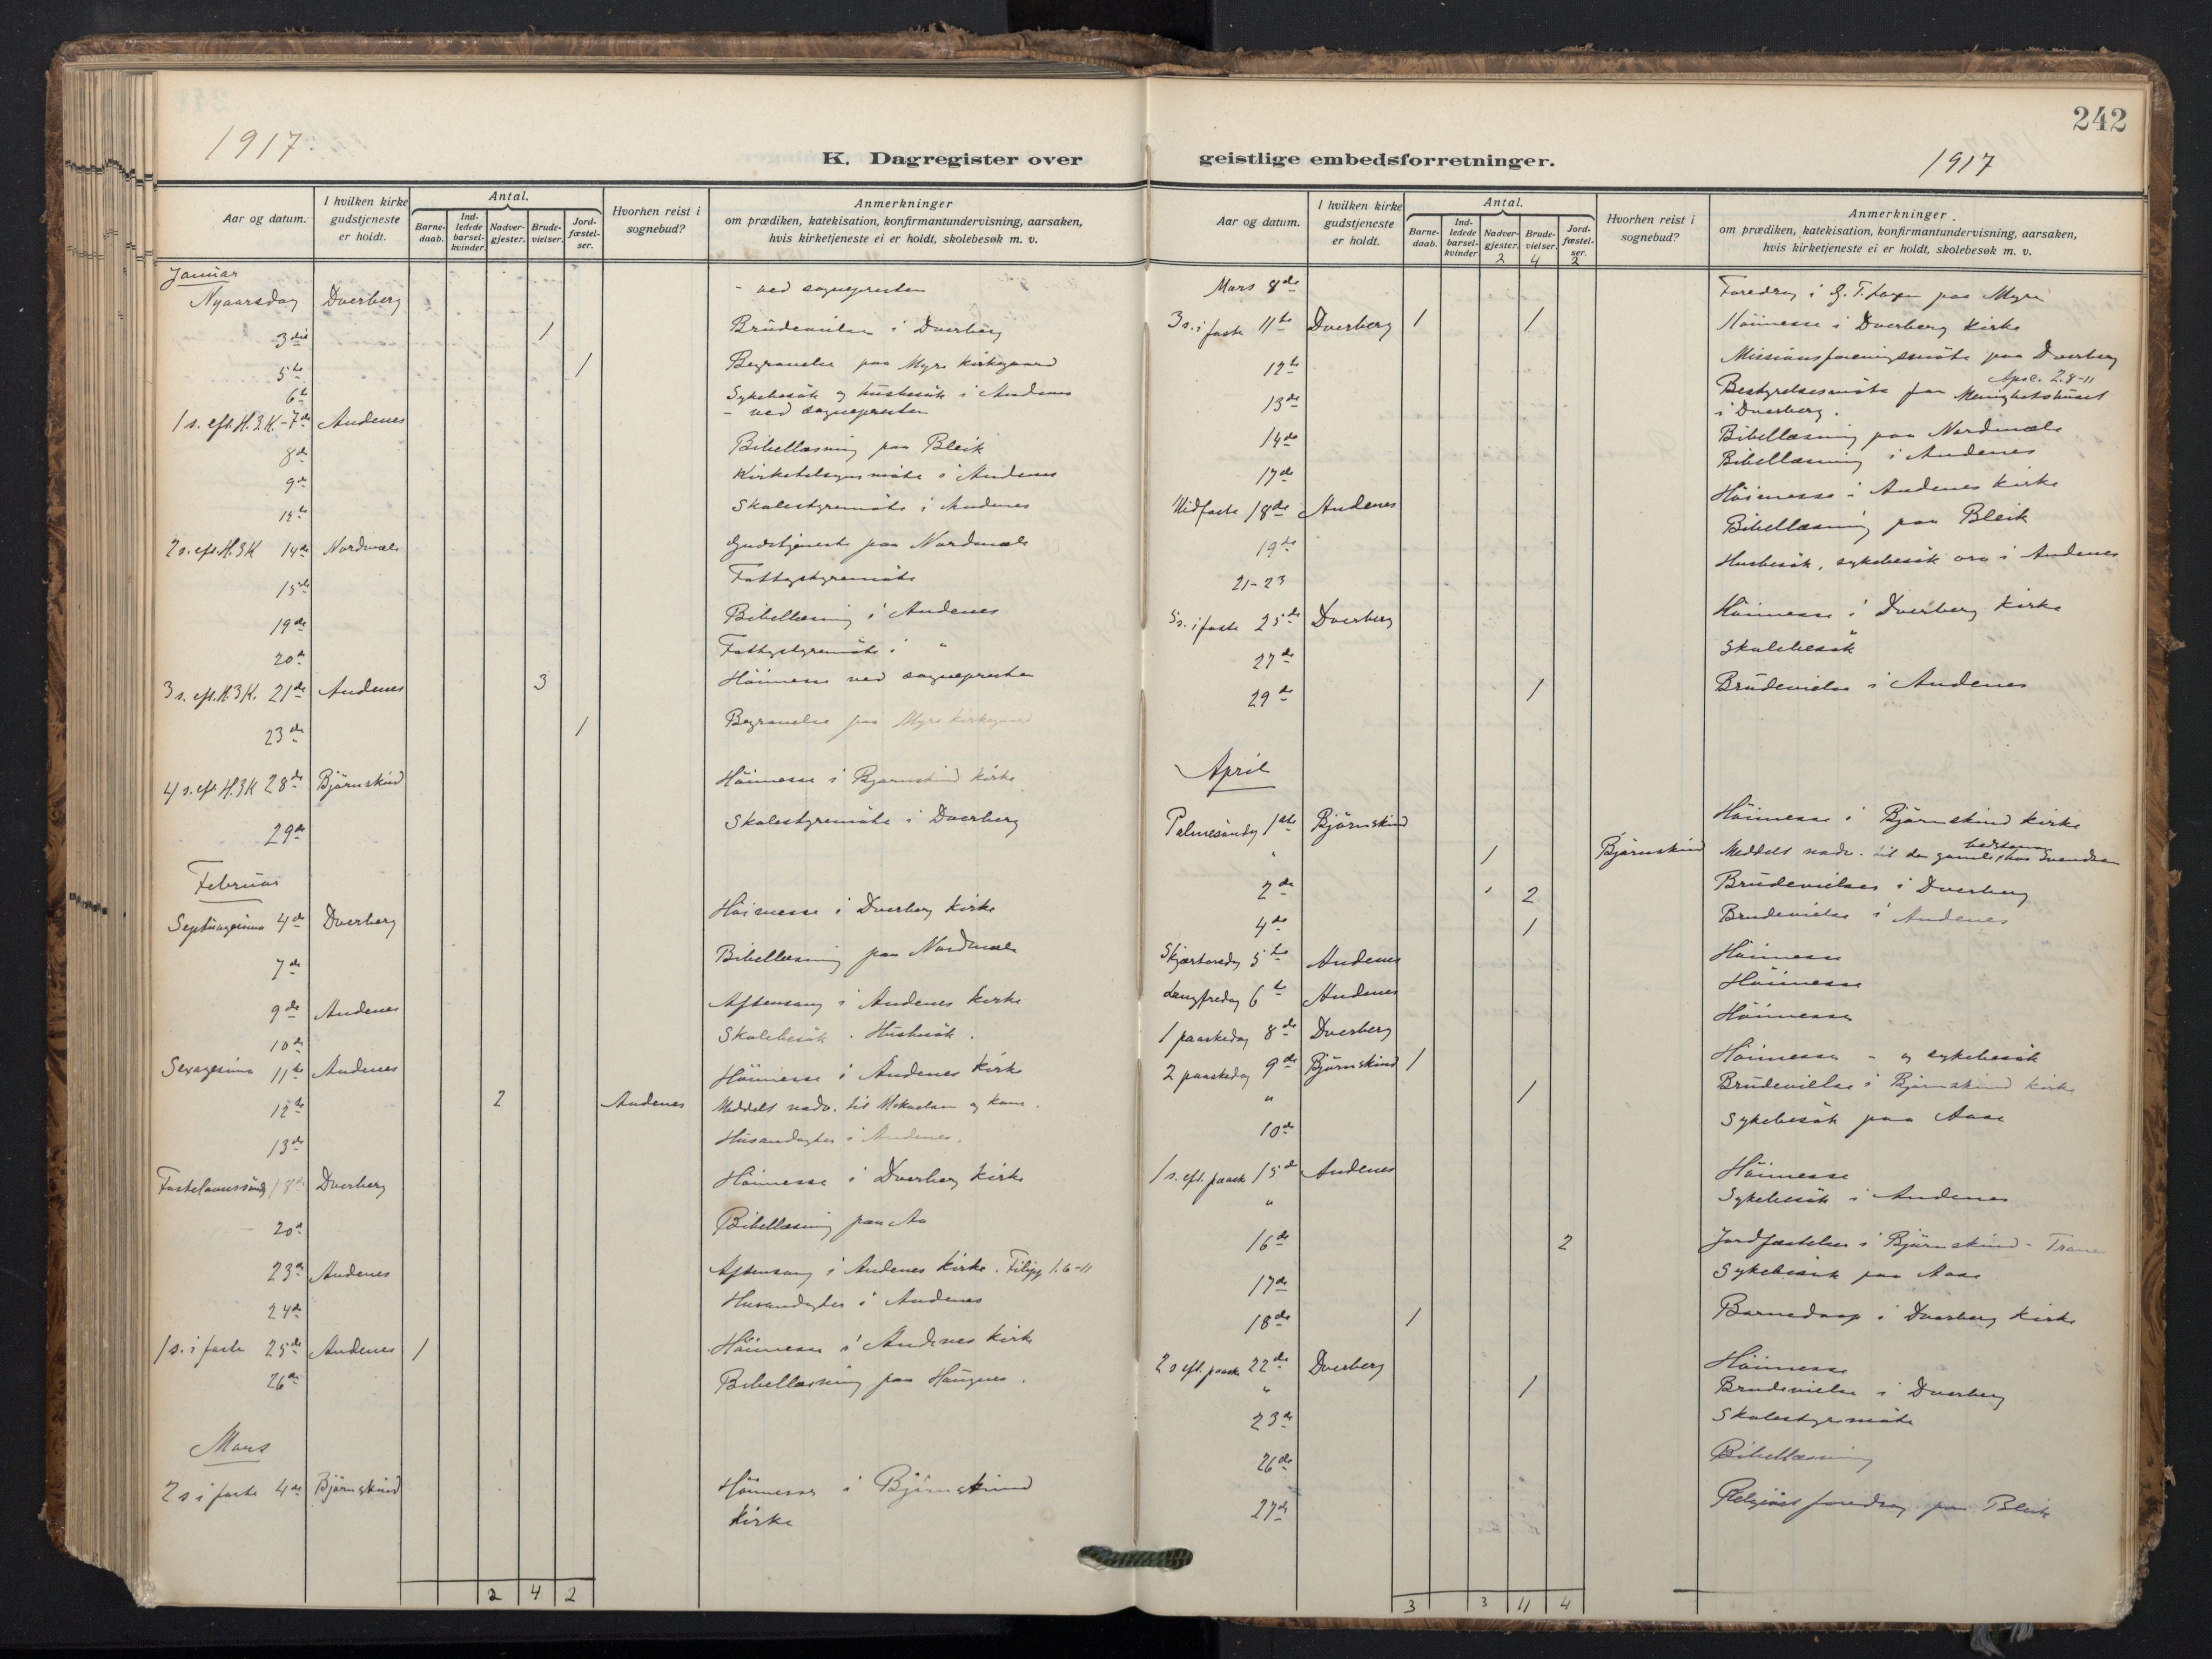 242
1917
1917
K. Dagregister over geistlige embedsforretninger.
Aar og datum.
I hvilken kirke gudstjeneste er holdt.
Antal.
Barnedaab.
Indledede barselkvinder
Nadvergjester.
Brudevielser.
Jordfæstelser.
Hvorhen reist i sognebud?
Anmerkninger
om prædiken, katekisation, konfirmantundervisning, aarsaken,
hvis kirketjeneste ei er holdt, skolebesøk m. v.
Januar
Nyaarsdag Dverberg - ved sognepresten
3die 1 Brudevielse i Dverberg
5te 1 Begravelse paa Myre kirkegaard
6te Sykebesök og husbesök i Andenes
1 s. eft. H.3.K.-7de Andenes - ved sognepresten
8de Bibellæsning paa Bleik
9de Kirketilsynsmöte i Andenes
12te Skolestyremöte i Andenes
2 s. eft. H.3K 14de Nordmæle Gudstjeneste paa Nordmæle
15de Fattigstyremöte
19de Bibellæsning i Andenes
20de Fattigstyremöte i "
3 s. eft. H.3K. 21de Andenes 3 Höimesse ved sognepresten
23de 1 Begravelse paa Myre kirkegaard
4 s. eft. H.3K 28de Björnskind Höimesse i Bjørnskind kirke
29de Skolestyremöte i Dverberg
Februar
Septuagesima 4de Dverberg Höimesse i Dverberg kirke
7de Bibellæsning paa Nordmæle
9de Andenes Aftensang i Andenes kirke
10de Skolebesök. Husbesök.
Sexagesima 11te Andenes Höimesse i Andenes kirke
12te 2 Andenes Meddelt nadv. til Mikaelsen og kone.
13de Husandagter i Andenes.
Fastelavnssöndag 18de Dverberg Höimesse i Dverberg kirke
20de Bibellæsning paa Aa
23de Andenes Aftensang i Andenes kirke. Filipp 1.6-11
24de Husandagter i Andenes
1 s. i faste 25de Andenes 1 Höimesse i Andenes kirke
26de Bibellæsning paa Haugnes.
Mars
2 s i faste 4de Björnskind Höimesse i Björnskind
kirke
2 4 2
Aar og datum.
I hvilken kirke gudstjeneste er holdt.
Antal.
Barnedaab.
Indledede barselkvinder
Nadvergjester.
Brudevielser.
Jordfæstelser.
2 4 2
Hvorhen reist i sognebud?
Anmerkninger.
om prædiken, katekisation, konfirmantundervisning, aarsaken,
hvis kirketjeneste ei er holdt, skolebesøk m. v.
Mars 8de Foredrag i G.T. paa Myre
3 s. i faste 11te Dverberg 1 1 Höimesse i Dverberg kirke
12te Missionsforeningsmöte paa Dverberg
Apoc. 2.8-11
13de Bestyrelsesmöte for Menighetshuset
i Dverberg.
14de Bibellæsning paa Nordmæle
17de Bibellæsning i Andenes
Midfaste 18de Andenes Höimesse i Andenes kirke
19de Bibellæsning paa Bleik
21-23 Husbesök, sykebesök osv i Andenes
5 s. i faste 25de Dverberg Höimesse i Dverberg kirke
27de Skolebesök
29de 1 Brudevielse i Andenes
April
Palmesöndag 1ste Björnskind Höimesse i Björnskind kirke
" 1 Björnskind Meddelt nadv. til den gamle hos Svendsen
2de 2 Brudevielser i Dverberg
4de 1 Brudevielse i Andenes
Skjærtorsdag 5te Andenes Höimesse
Langfredag 6te Andenes Höimesse
1 paaskedag 8de Dverberg Höimesse
2 paaskedag 9de Björnskind 1 Höimesse - og sykebesök
" 1 Brudevielse i Björnskind kirke
10de Sykebesök paa Aase
1 s. eft. paaske 15de Andenes Höimesse
" Sykebesök i Andenes
16de 2 Jordfæstelser i Björnskind -
17de Sykebesök paa Aase
18de 1 Barnedaap i Dverberg kirke
2 s eft. paaske 22de Dverberg Höimesse
" 1 Brudevielse i Dverberg
23de Skolestyremöte
26de Bibellæsning
27de Religiöst foredrag paa Bleik
3 3 11 4